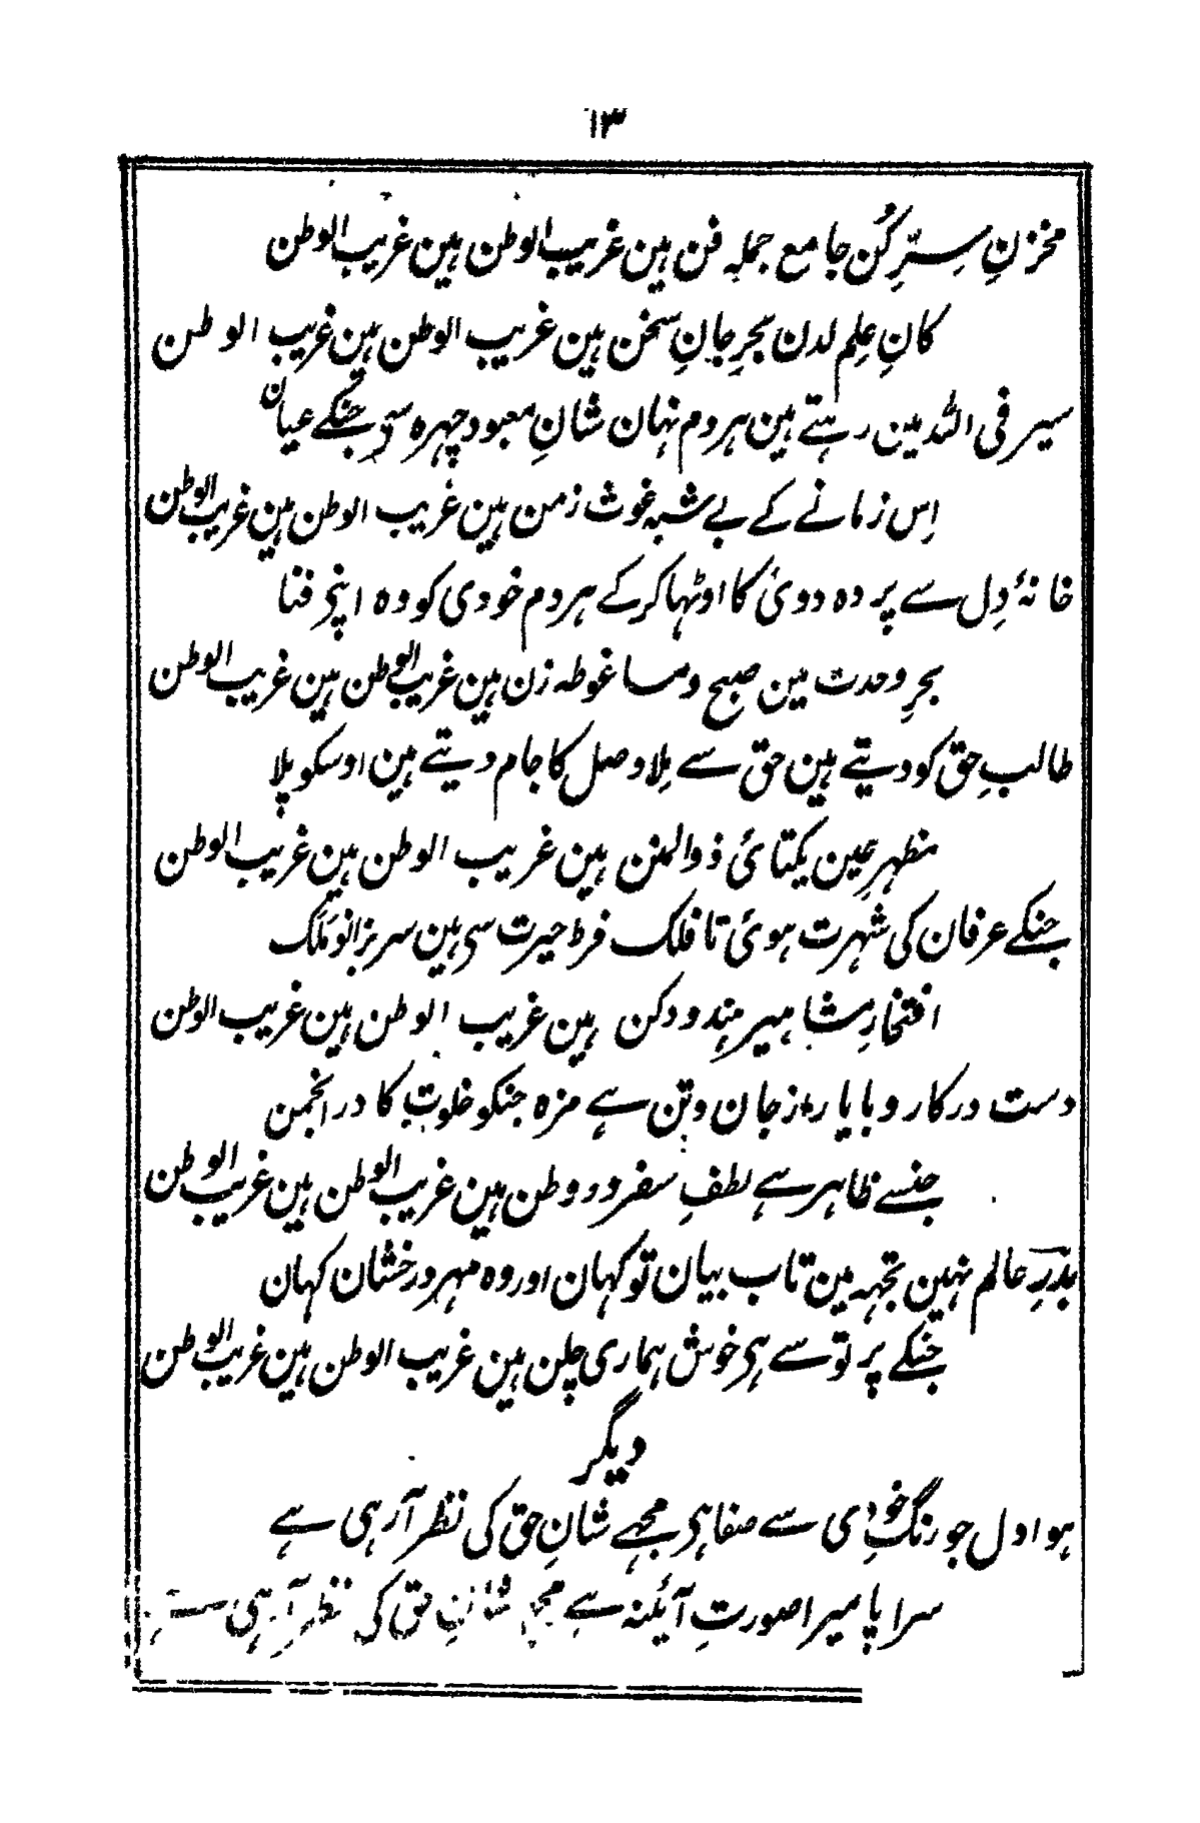 ۱۳
مخزنِ سِرِّ کُن جامع جملہ فن ہین غریب الوطن ہین غریب الوطن
کانِ عِلم لدن بحرِ جانِ سخن ہین غریب الوطن ہین غریب الوطن
سیر فی اللہ مین رہتے ہین ہر دم نہان شانِ معبود چہرہ سی جنکے عیان
اِس زمانے کے بے شبہ غوث زمن ہین غریب الوطن ہین غریب الوطن
خانۂ دِل سے پردہ دوئی کا اوٹہا کر کے ہر دم خودی کو وہ اپنی فنا
بحرِ وحدت مین صبح و مسا غوطہ زن ہین غریب الوطن ہین غریب الوطن
طالبِ حق کو دیتے ہین حق سے مِلا وصل کا جام دیتے ہین اوسکو پلا
مظہرِ عین یکتائی ذوالمنن ہین غریب الوطن ہین غریب الوطن
جنکے عرفان کی شہرت ہوئی تا فلک فرط حیرت سی ہین سر بزانو مَلَک
افتخارِ مشاہیر ہند و دکن ہین غریب الوطن ہین غریب الوطن
دست در کار و با یار از جان و تن ہے مزہ جنکو خلوت کا در انجمن
جنسے ظاہر ہے لطفِ سفر در وطن ہین غریب الوطن ہین غریب الوطن
بذرِ عالم نہین تجہہ مین تاب بیان تو کہان اور وہ مہر درخشان کہان
جنکے پر تو سے ہی خوش ہماری چلن ہین غریب الوطن ہین غریب الوطن
دیگر
ہوا دل جو رنگِ خودی سے صفا ہی مجہے شانِ حق کی نظر آ رہی ہے
سراپا میرا صورتِ آئینہ ہے مجہے شانِ حق کی نظر آ رہی ہے